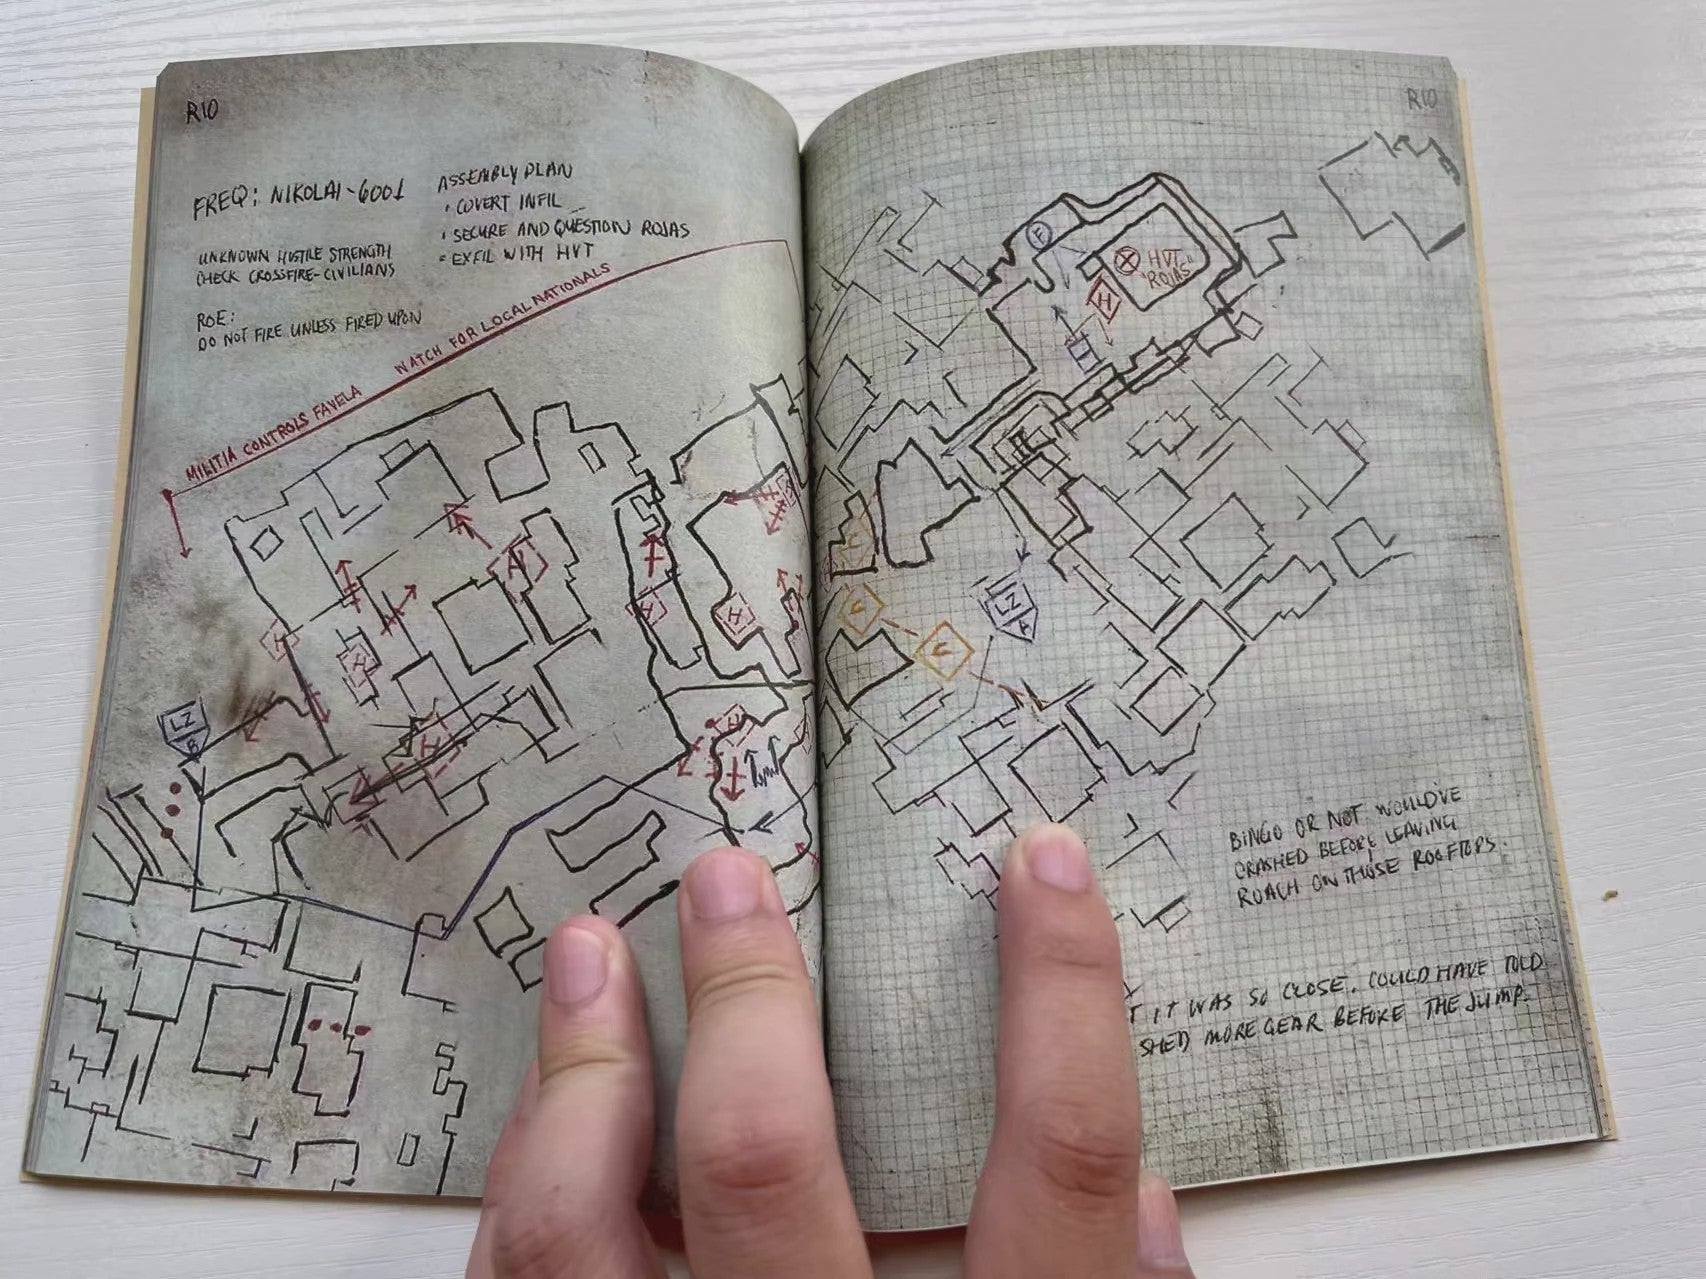 RIO
FREQ: NIKOLAI-6001
UNKNOWN HUSTILE STRENGTH
CHECK CROSSFIRE-CIVILIANS
ROE:
DO NOT FIRE UNLESS FIRED UPON
ASSEMBLY PLAN
• COVERT INFIL
• SECURE AND QUESTION ROJAS
• EXFIL WITH HVT
MILITIA CONTROLS FAVELA WATCH FOR LOCAL NATIONALS
H
H
H
H
H
H
H
LZ
B
RIO
F
HVT
"ROJAS"
H
C
C
C
LZ
A
BINGO OR NOT WOULD'VE
CRASHED BEFORE LEAVING
ROACH ON THOSE ROOFTOPS.
T IT WAS SO CLOSE. COULD HAVE TOLD
SHED MORE GEAR BEFORE THE JUMP.